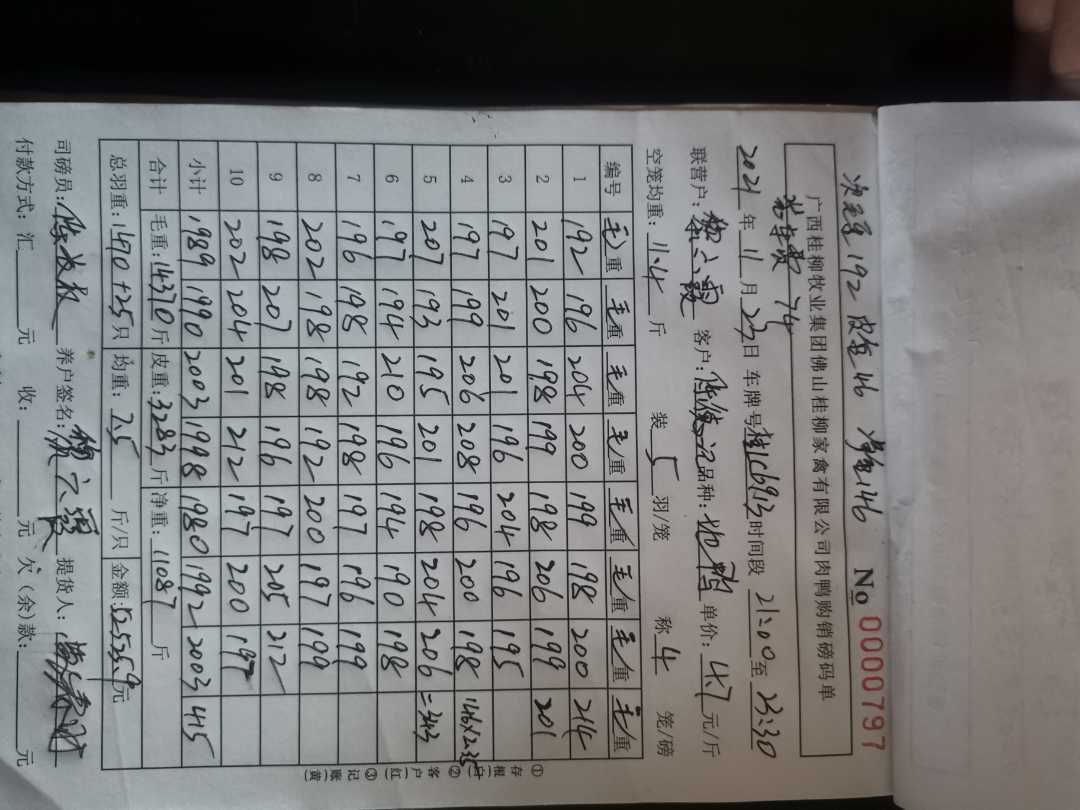 次毛重192 皮重46 净重146 No 0000797
广西桂柳牧业集团佛山桂柳家禽有限公司肉鸭购销磅码单
2021年11月27日 车牌号 时间段21:00至23:30
联营户: 客户: 品种: 单价:4.7元/斤
空笼均重:11.4斤 装5羽/笼 称4笼/磅
编号 毛重 毛重 毛重 毛重 毛重 毛重 毛重 毛重
1 192 196 204 200 199 198 200 214
2 201 200 198 199 198 206 199 201
3 197 201 201 196 204 196 195
4 197 199 206 208 196 200 198 146×2.35
5 207 193 195 201 198 204 206 =343
6 197 194 210 196 194 190 198
7 196 198 192 198 197 196 199
8 202 198 198 192 200 197 199
9 198 207 198 196 197 205 212
10 202 204 201 212 197 200 197
小计 1989 1990 2003 1998 1980 1992 2003 415
合计 毛重:14370斤 皮重:3283斤 净重:11087斤
总羽重:1490+25只 均重:7.5斤/只 金额:52525.9元
司磅员: 养户签名: 提货人:
付款方式:汇 元 收: 元 欠(余)款: 元
①存根(白)②客户(红)③记账(黄)